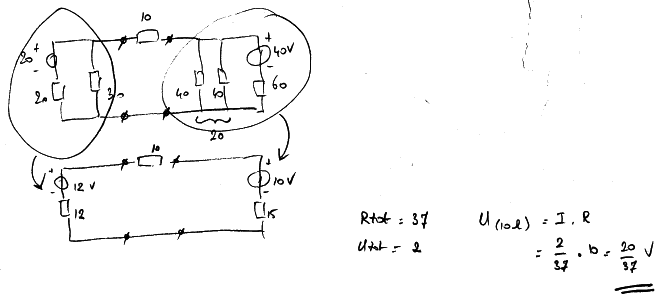 10
20
+
-
20
30
40
40
+
40V
-
60
20
10
+
12 V
-
12
+
10V
-
15
Rtot = 37
Utot = 2
U(10Ω) = I . R
= 2/37 . 10 = 20/37 V